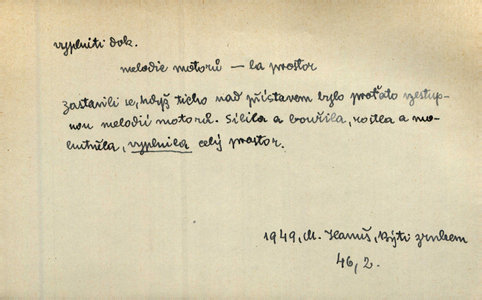 vyplniti dok.
melodie motorů — la prostor
Zastavili se, když ticho nad přístavem bylo proťato vzestup-
nou melodií motorů. Sílila a bouřila, rostla a mo-
hutněla, vyplnila celý prostor.
1949, M. Hanuš, Býti zrnkem
46, 2.